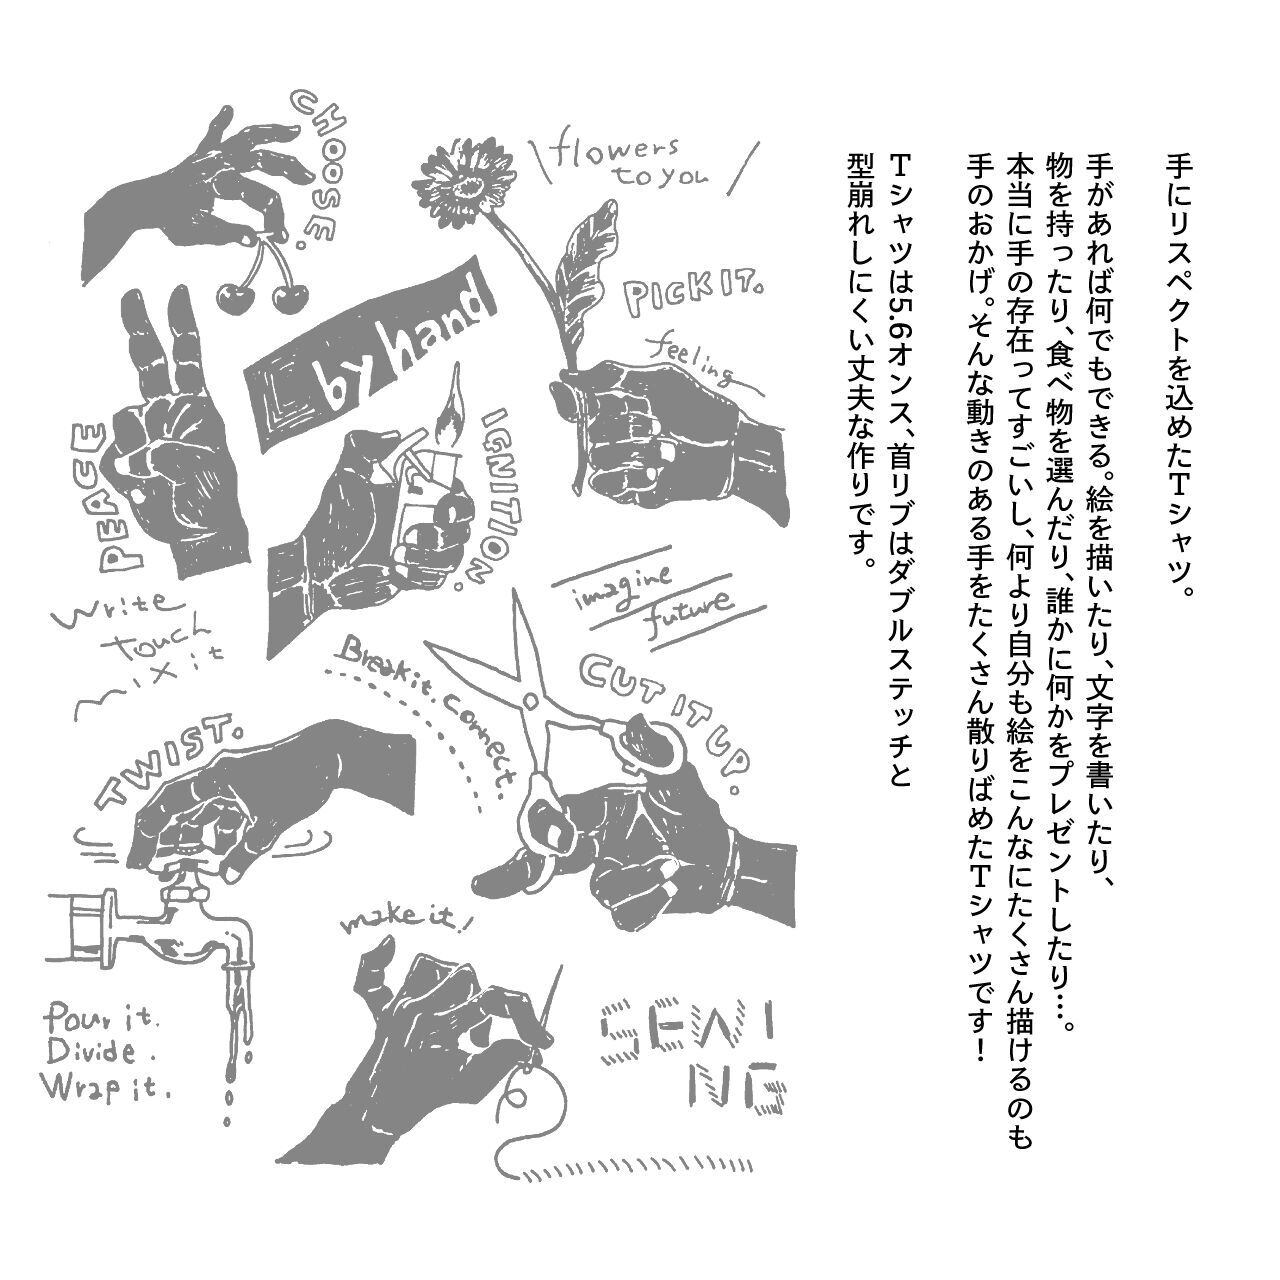 手にリスペクトを込めたTシャツ。
手があれば何でもできる。絵を描いたり、文字を書いたり、
物を持ったり、食べ物を選んだり、誰かに何かをプレゼントしたり…。
本当に手の存在ってすごいし、何より自分も絵をこんなにたくさん描けるのも
手のおかげ。そんな動きのある手をたくさん散りばめたTシャツです！
Tシャツは5.6オンス、首リブはダブルステッチと
型崩れしにくい丈夫な作りです。
CHOOSE.
flowers
to you
PICK IT.
feeling
by hand
PEACE
IGNITION.
write
touch
mix it
imagine
future
Break it. connect.
CUT IT UP.
TWIST.
make it!
Pour it.
Divide.
Wrap it.
SEWI
NG